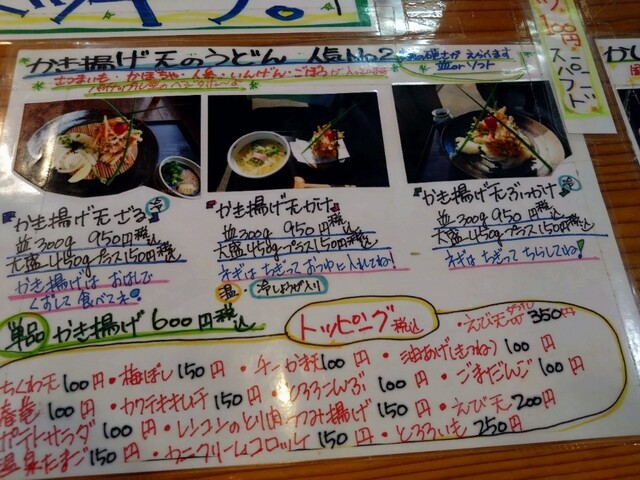 かき揚げ天のうどん 人気No.2
さつまいも・かぼちゃ・人参・いんげん・ごぼう
並orソフト
かき揚げ天ざる 冷
並300g 950円税込
大盛450gプラス150円税込
かき揚げは おはしで
くずして 食べてネ!
かき揚げ天かけ
並300g 950円税込
大盛450gプラス150円税込
ネギはちぎって おつゆに入れてね!
温・冷しょうが入り
かき揚げ天ぶっかけ 冷
並300g 950円税込
大盛450gプラス150円税込
ネギはちぎって ちらしてね!
単品 かき揚げ 600円税込
トッピング 税込
・えび天 350円
ちくわ天 100円・梅ぼし 150円・チーかま天 100円・油あげ(きつね) 100円
春巻 100円・カクテキキムチ 150円・とろろこんぶ 100円・ごまだんご 100円
ポテトサラダ 100円・レンコンのとり肉つつみ揚げ 150円・えび天 200円
温泉たまご 150円・カニクリームコロッケ 150円・とろろいも 250円